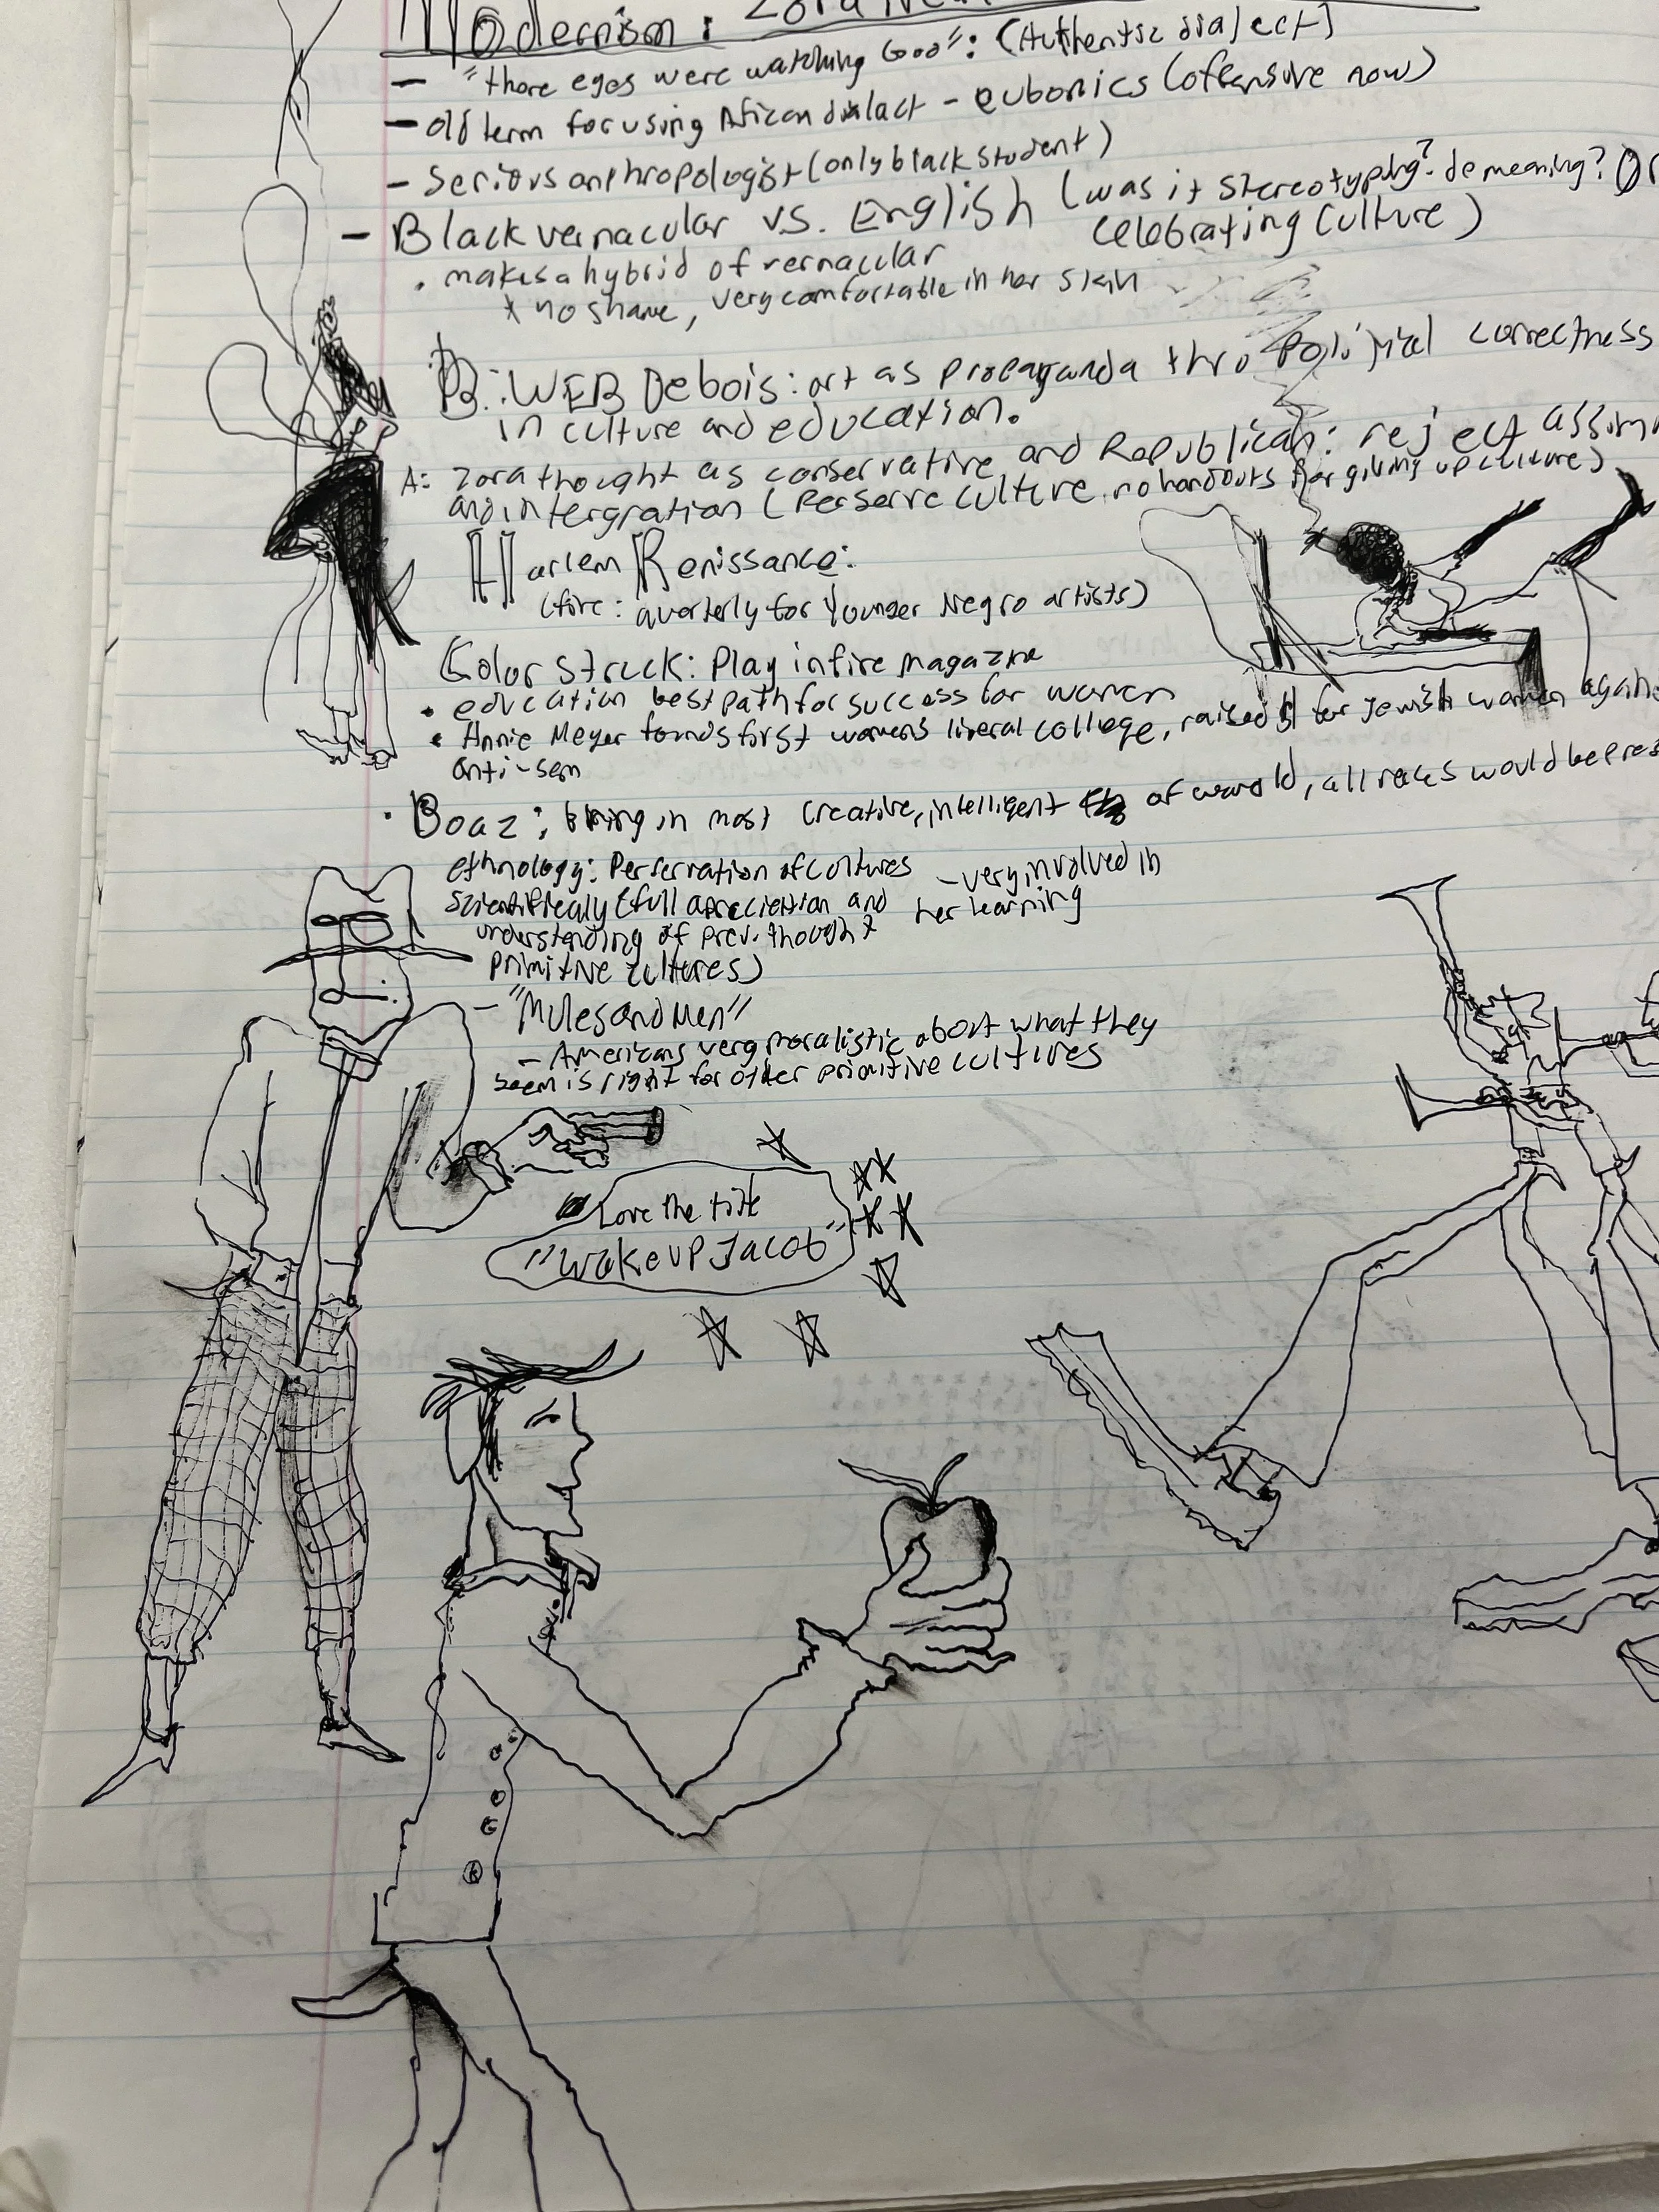 Modernism: Zora Neal
- "there eyes were watching God": (Authentic dialect)
- old term for using African dialact - eubonics (offensive now)
- Serious anthropologist (only black student)
- Black vernacular vs. English (was it stereotyping? demeaning? Or
celebrating culture)
. makes a hybrid of vernacular
* no shame, very comfortable in her skin
B: WEB Debois: art as propaganda thro political correctness
in culture and education.
A: Zora thought as conservative and Republican: reject assim
and intergration (Perserve culture, no handouts for giving up culture)
Harlem Renissance:
(fire: quarterly for Younger Negro artists)
Color Struck: Play in fire magazine
• education best path for success for women
• Annie Meyer founds first womens liberal college, raised $ for Jewish women again
anti-sem
• Boaz: bring in most creative, intelligent of world, all races would be pres
ethnology: Perservation of cultures
scientifically (full apreciation and
understanding of prev. thought
primitive cultures)
- very involved in
her learning
- "Mules and Men"
- Americans very moralistic about what they
seem is right for older primitive cultures
Love the title
"Wake up Jacob"